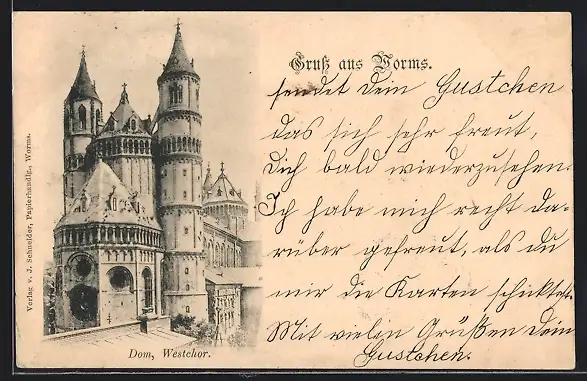 Gruß aus Worms.
sendet Dein Gustchen
das sich sehr freut,
Dich bald wiederzusehen.
Ich habe mich recht da-
rüber gefreut, als du
mir die Karten schicktest.
Mit vielen Grüßen Dein
Gustchen.
Dom, Westchor.
Verlag v. J. Schneider, Papierhandlg., Worms.